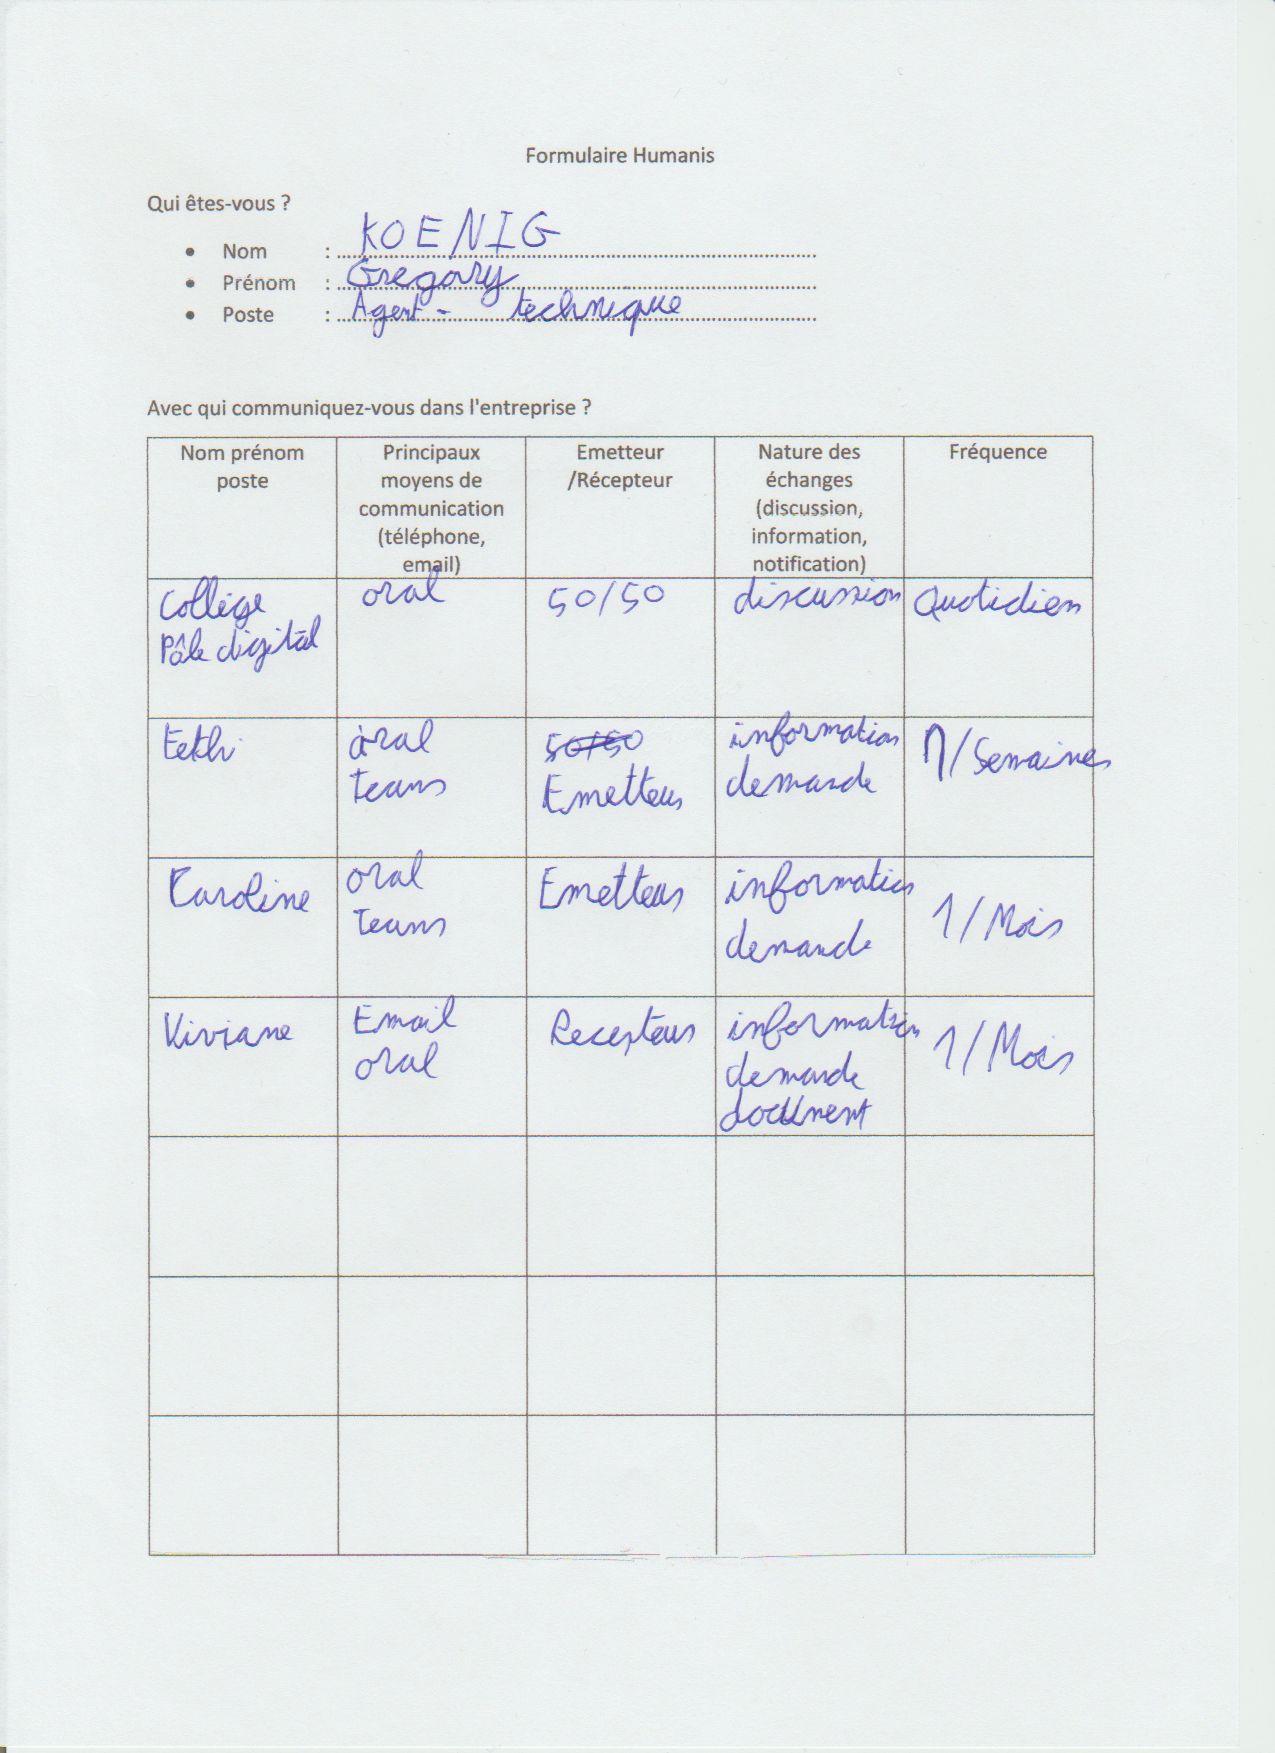 Formulaire Humanis
Qui êtes-vous ?
• Nom : KOENIG
• Prénom : Gregory
• Poste : Agent - technique
Avec qui communiquez-vous dans l'entreprise ?
Nom prénom
poste
Principaux
moyens de
communication
(téléphone,
email)
Emetteur
/Récepteur
Nature des
échanges
(discussion,
information,
notification)
Fréquence
Collège
Pôle digital
oral
50/50
discussion
Quotidien
oral
Teams
50/50
Emetteur
information
demande
1/Semaines
Caroline
oral
Teams
Emetteur
information
demande
1/Mois
Viviane
Email
oral
Recepteur
information
demande
document
1/Mois